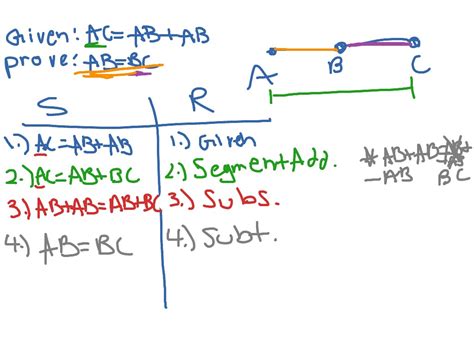 Given: AC=AB+AB
prove: AB=BC
A B C
S R
1.) AC=AB+AB 1.) Given
2.) AC=AB+BC 2.) Segment Add.
3.) AB+AB=AB+BC 3.) Subs.
4.) AB=BC 4.) Subt.
AB+AB=AB+
-AB BC